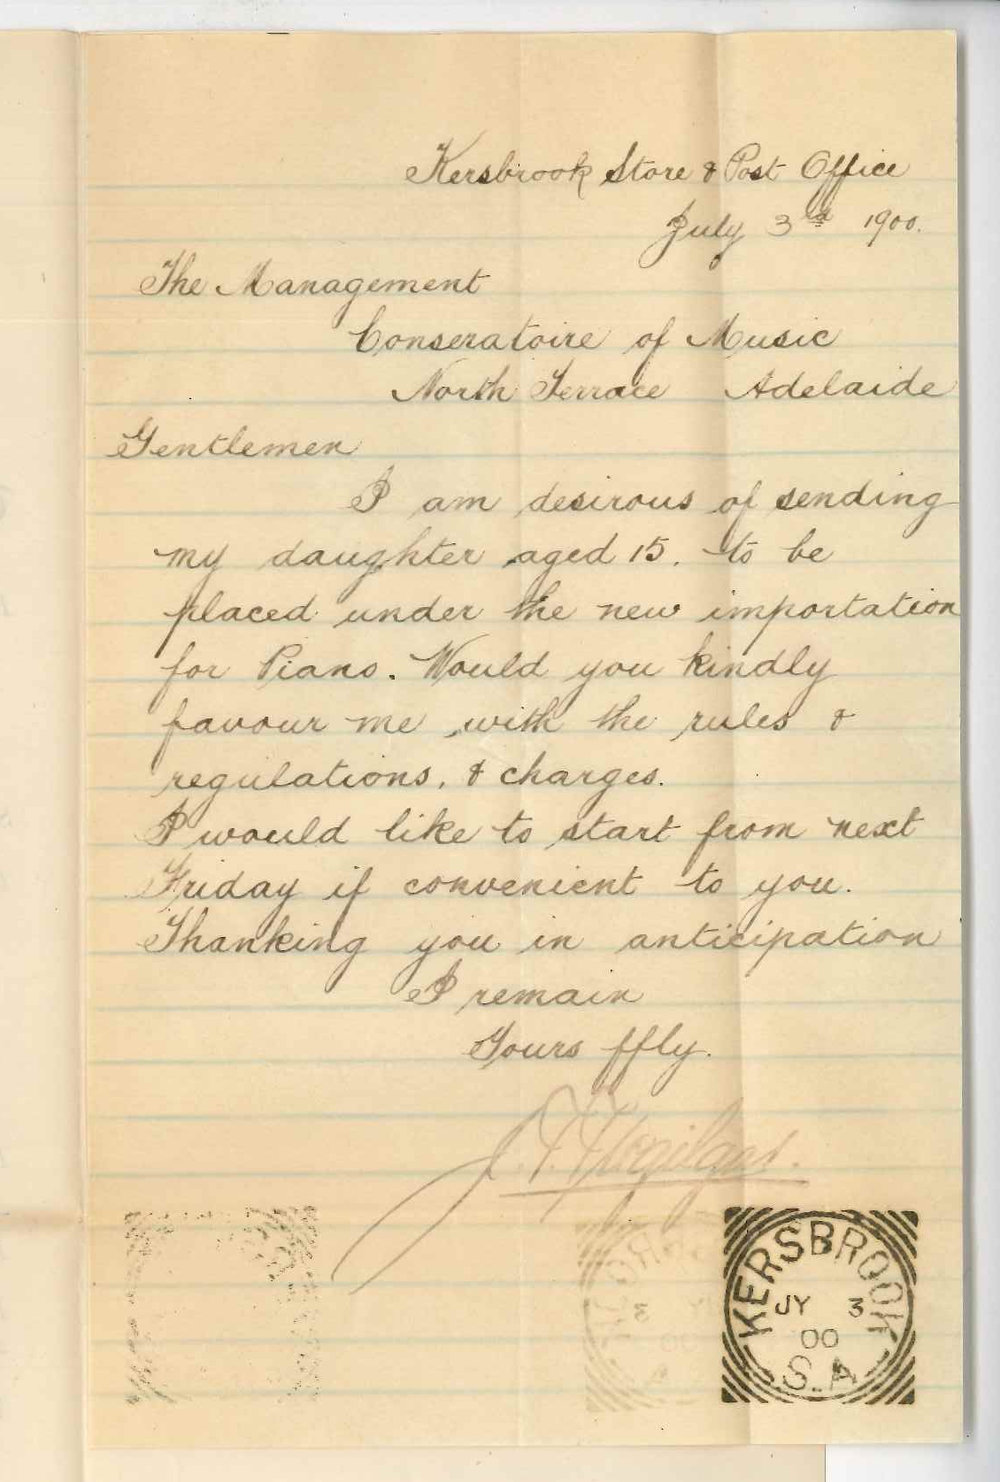 Kersbrook Store & Post Office
July 3rd 1900.
The Management
Conseratoire of Music
North Terrace Adelaide
Gentlemen
I am desirous of sending
my daughter aged 15. to be
placed under the new importation
for Piano. Would you kindly
favour me with the rules &
regulations, & charges.
I would like to start from next
Friday if convenient to you.
Thanking you in anticipation
I remain
Yours ffly.
KERSBROOK
JY 3
00
S.A